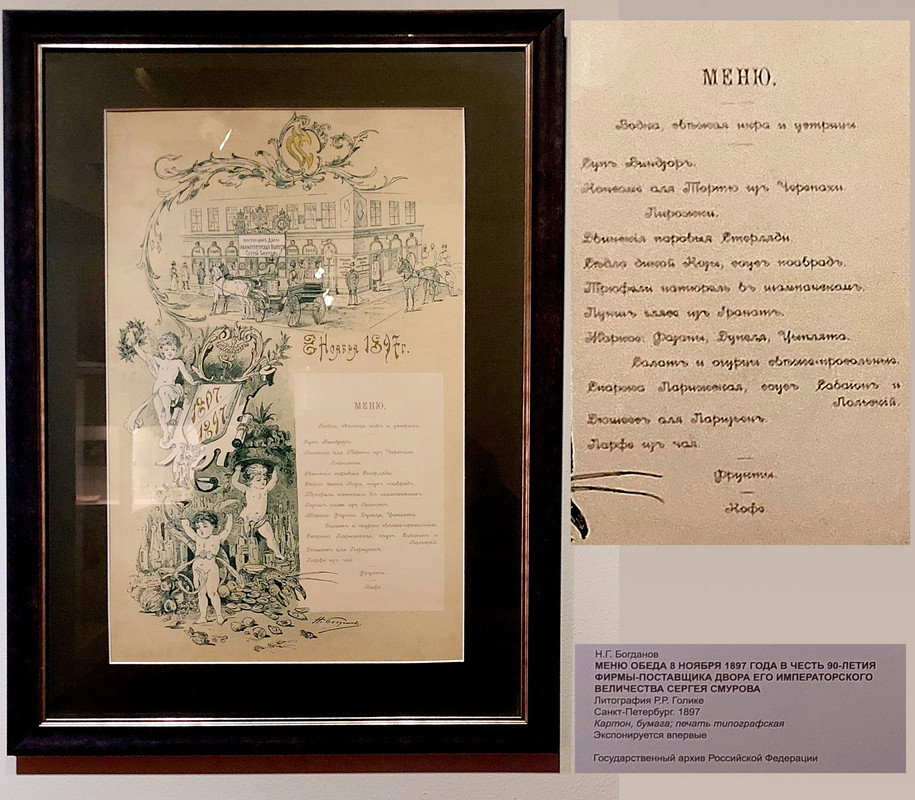 8 Ноября 1897г.
1807.
1897
МЕНЮ.
Водка, свѣжая икра и устрицы
Супъ Виндзоръ.
Консоме аля Тортю изъ Черепахи
Пирожки.
Двинскія паровыя Стерляди.
Сѣдло дикой Козы, соусъ поаврадъ.
Трюфели натюрель въ шампанскомъ.
Пуншъ гляссе изъ Гранатъ.
Жаркое: Фазаны, Дупеля, Цыплята.
Салатъ и огурцы свѣже-просольные.
Спаржа Парижская, соусъ Сабаіонъ и
Польскій.
Дюшесъ аля Паризьенъ.
Парфе изъ чая.
Фрукты.
Кофе.
Н.Г. Богданов
МЕНЮ ОБЕДА 8 НОЯБРЯ 1897 ГОДА В ЧЕСТЬ 90-ЛЕТИЯ
ФИРМЫ-ПОСТАВЩИКА ДВОРА ЕГО ИМПЕРАТОРСКОГО
ВЕЛИЧЕСТВА СЕРГЕЯ СМУРОВА
Литография Р.Р. Голике
Санкт-Петербург. 1897
Картон, бумага; печать типографская
Экспонируется впервые
Государственный архив Российской Федерации